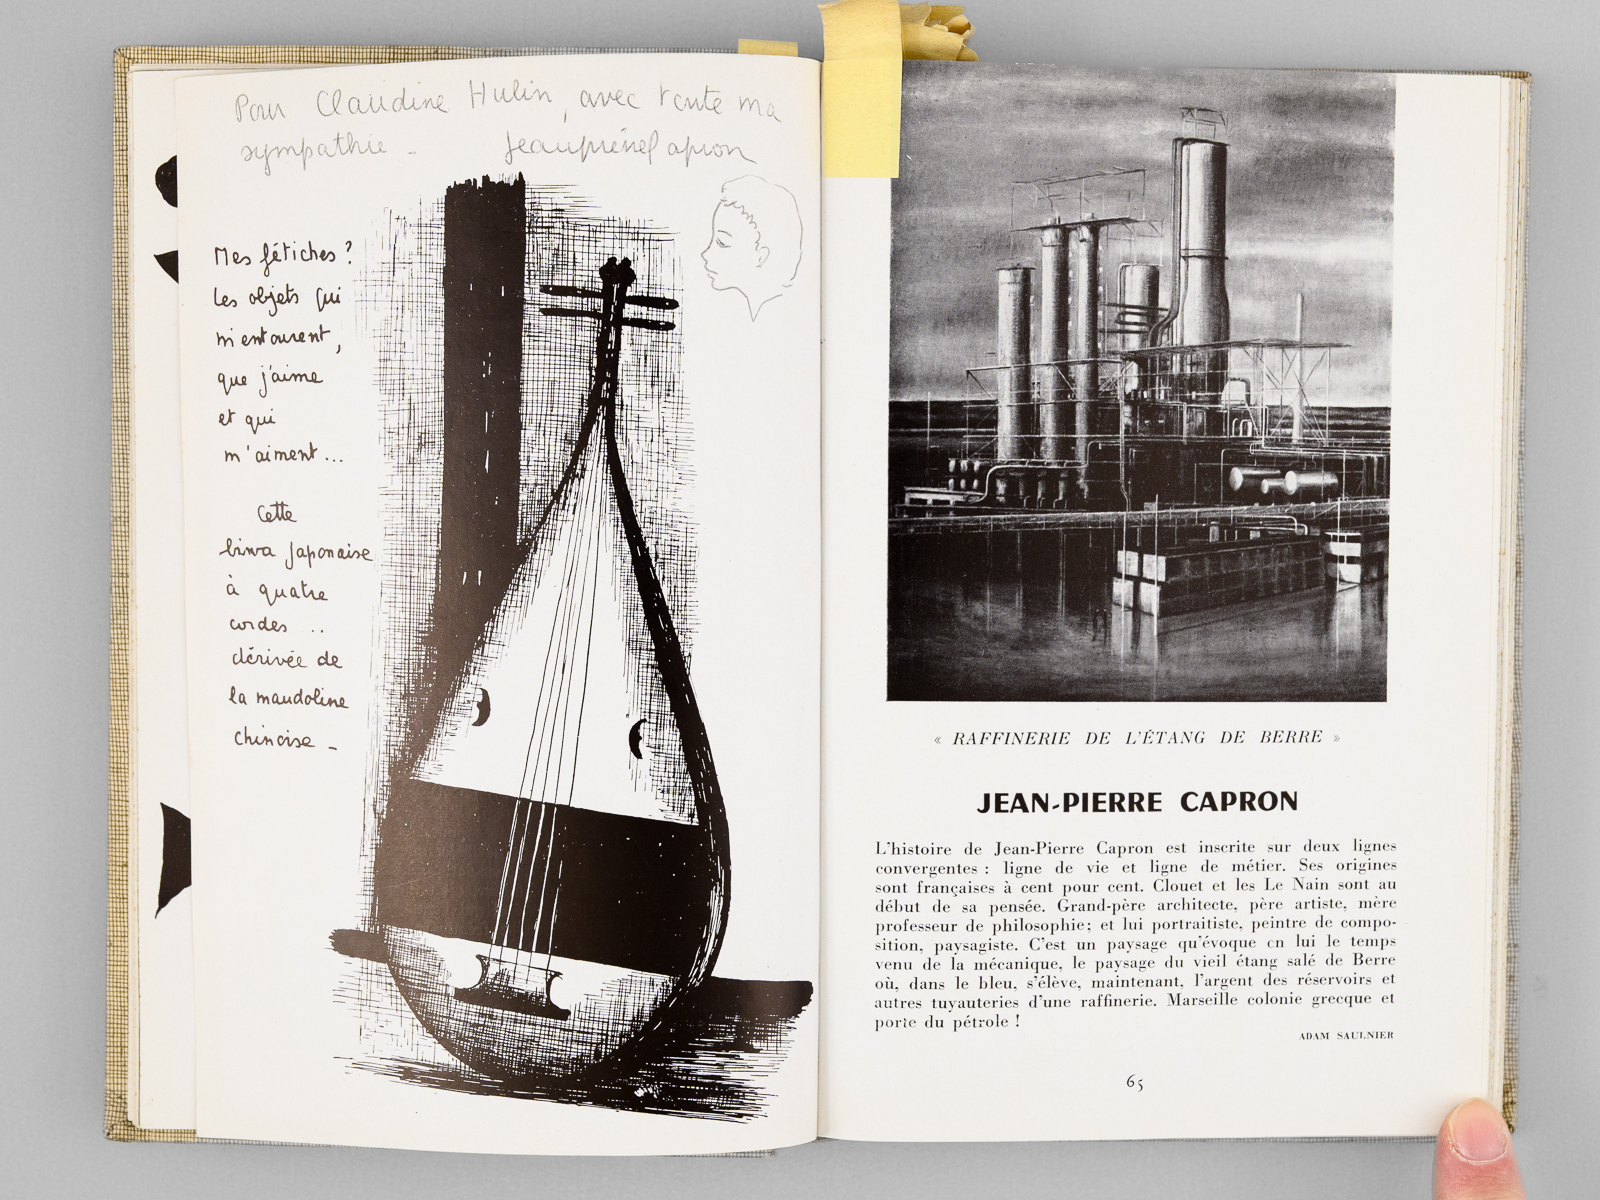 Pour Claudine Hulin, avec toute ma
sympathie - Jeanpierre Capron
Mes fétiches ?
les objets qui
m'entourent,
que j'aime
et qui
m'aiment...
Cette
biwa japonaise
à quatre
cordes ..
dérivée de
la mandoline
chinoise -
« RAFFINERIE DE L'ÉTANG DE BERRE »
JEAN-PIERRE CAPRON
L'histoire de Jean-Pierre Capron est inscrite sur deux lignes
convergentes : ligne de vie et ligne de métier. Ses origines
sont françaises à cent pour cent. Clouet et les Le Nain sont au
début de sa pensée. Grand-père architecte, père artiste, mère
professeur de philosophie; et lui portraitiste, peintre de compo-
sition, paysagiste. C'est un paysage qu'évoque en lui le temps
venu de la mécanique, le paysage du vieil étang salé de Berre
où, dans le bleu, s'élève, maintenant, l'argent des réservoirs et
autres tuyauteries d'une raffinerie. Marseille colonie grecque et
porte du pétrole !
ADAM SAULNIER
65